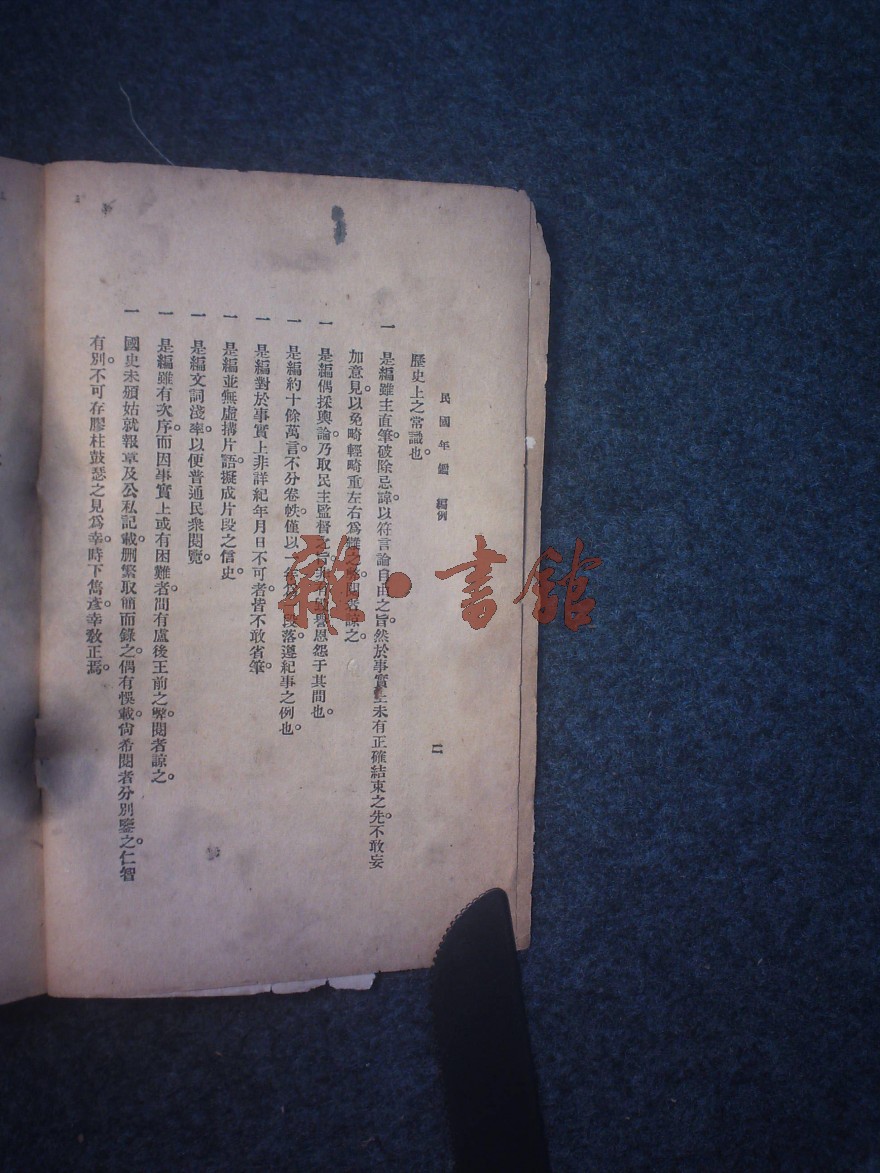 民國年鑑 編例
二
歷史上之常識也。
一 是編雖主直筆。破除忌諱。以符言論自由之旨。然於事實上未有正確結束之先。不敢妄
加意見。以免畸輕畸重。左右爲難之
諒之。
一 是編偶採輿論。乃取民主監督之
恩怨于其間也。
一 是編約十餘萬言。不分卷帙。僅以一
段落。遵紀事之例也。
一 是編對於事實上非詳紀年月日不可者。皆不敢省筆。
一 是編並無虛搆片語。擬成片段之信史。
一 是編文詞淺率。以便普通民衆閱覽。
一 是編雖有次序。而因事實上或有困難者。間有盧後王前之弊。閱者諒之。
一 國史未頒。姑就報章及公私記載。删繁取簡而錄之。偶有悞載。尙希閱者分別鑒之。仁智
有別。不可存膠柱鼓瑟之見爲幸。時下雋彥。幸敎正焉。
雜·書館